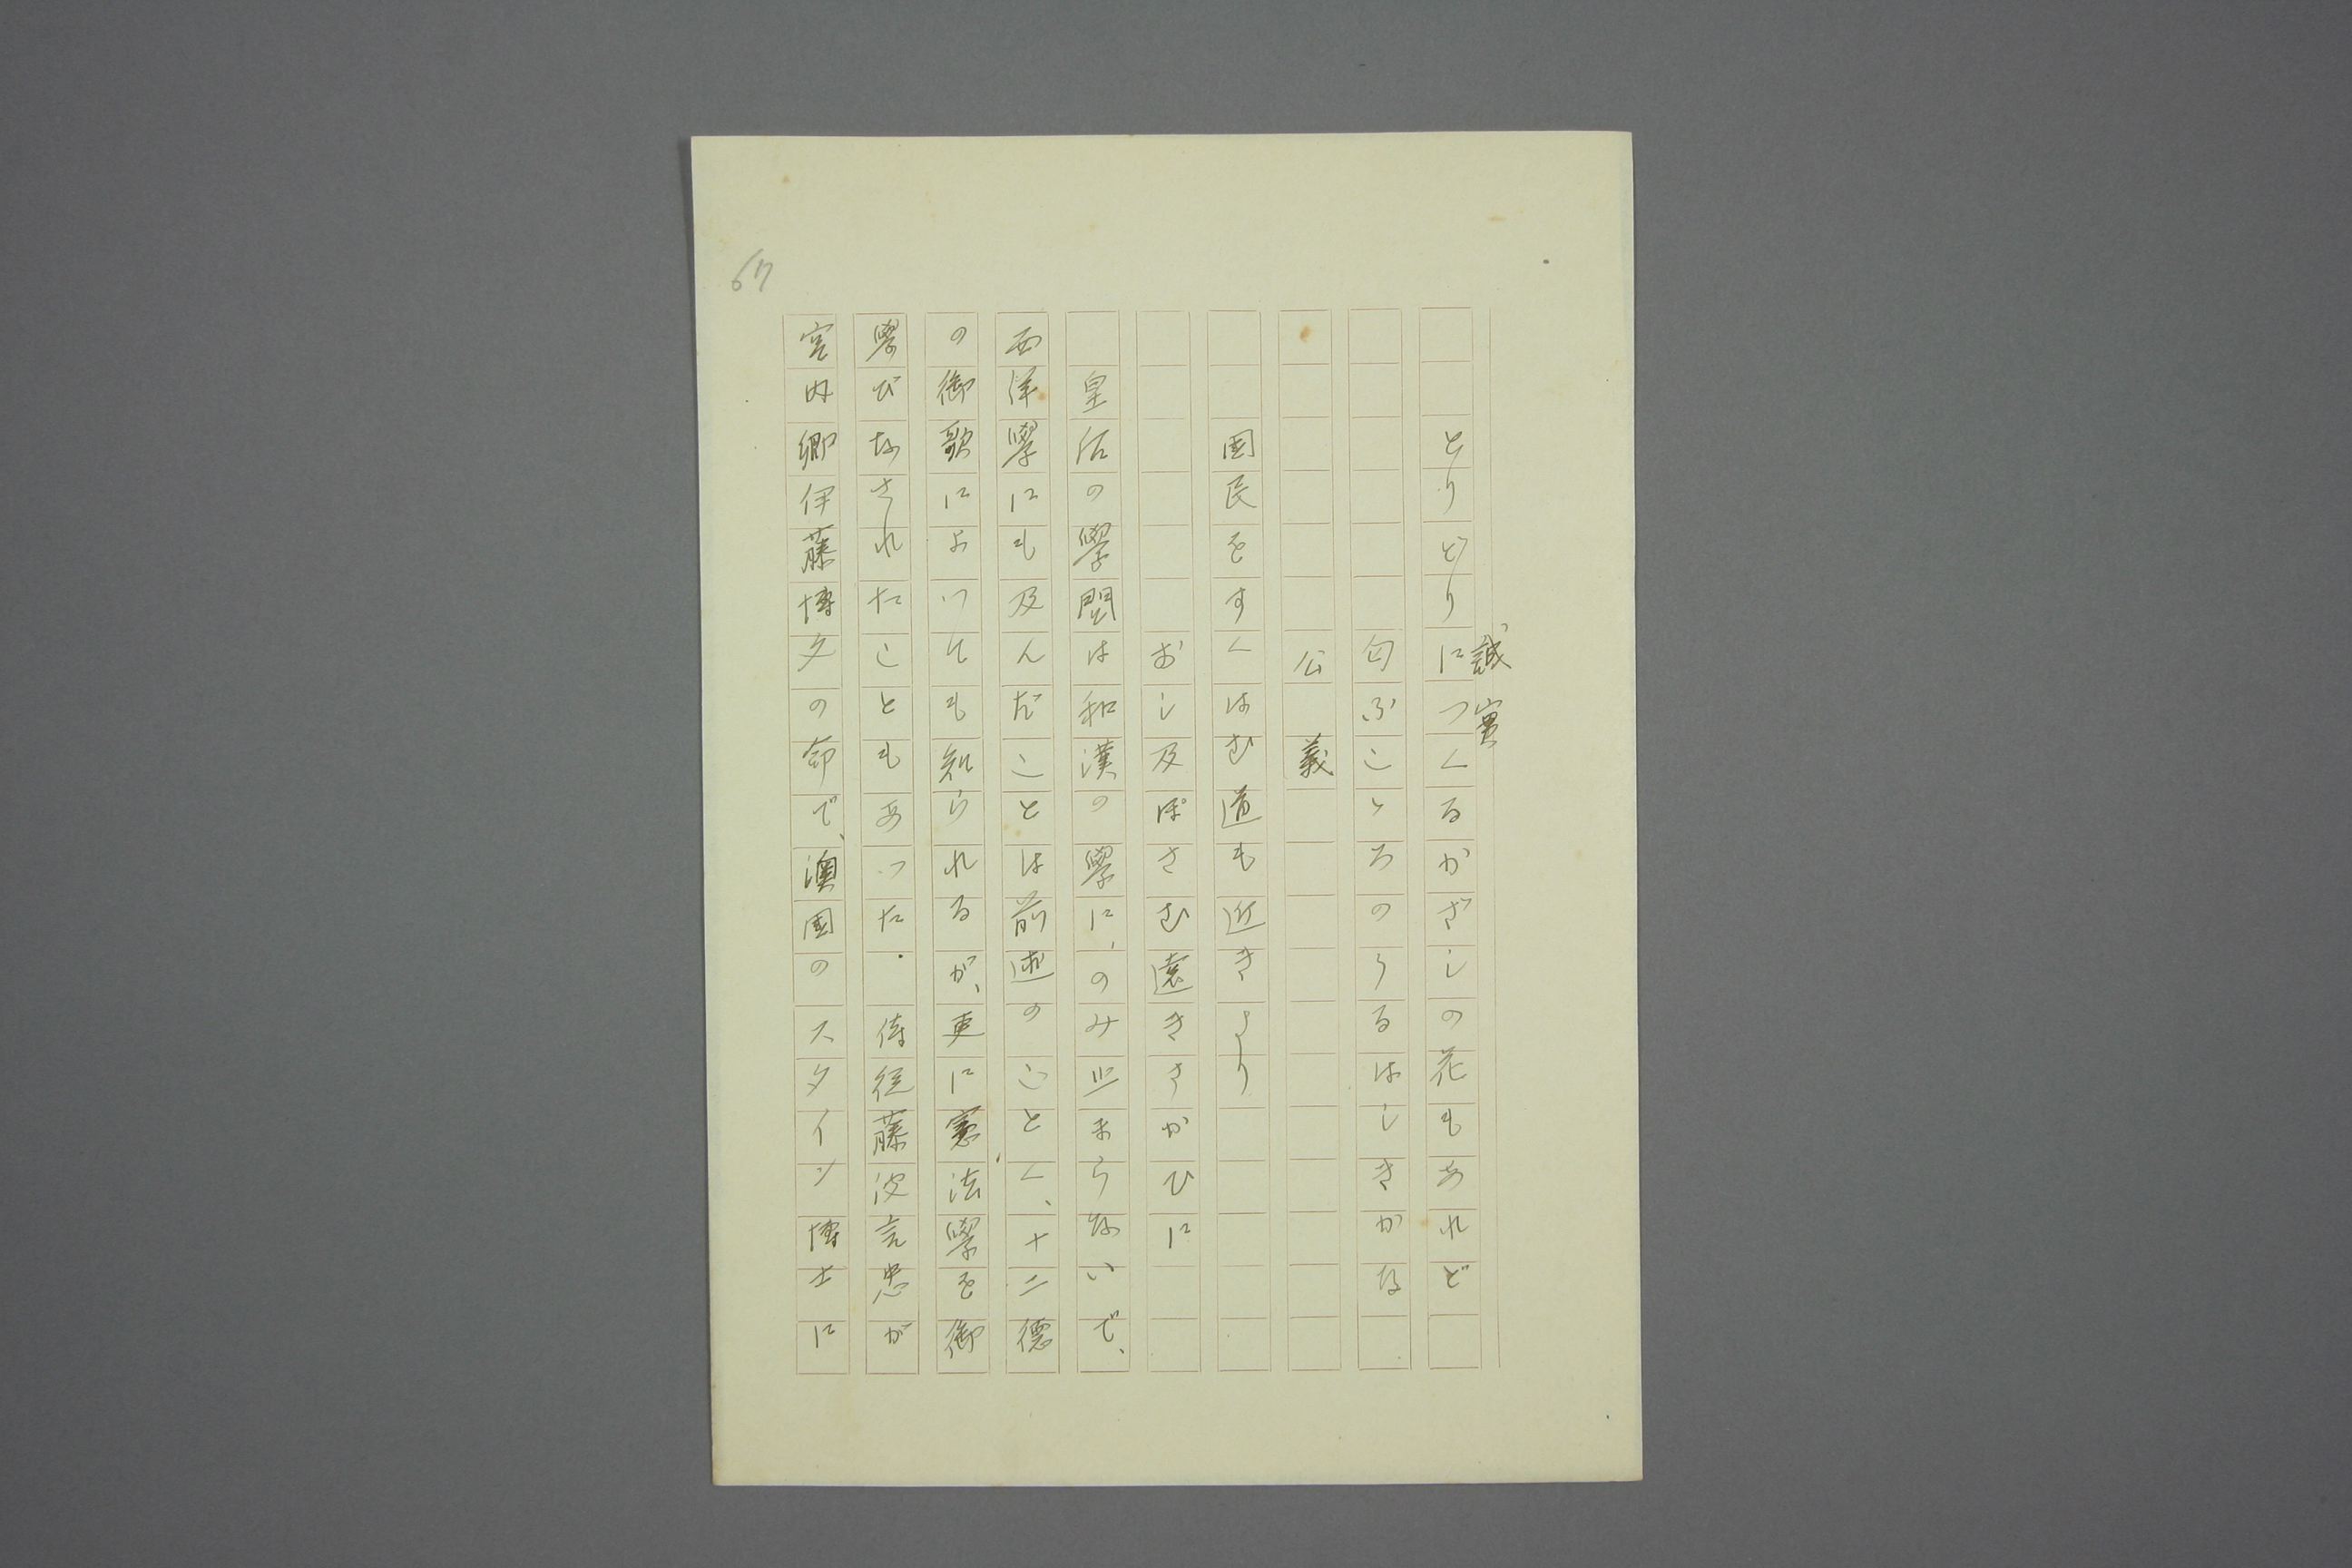 67
誠實
とりどりにつくるかざしの花もあれど
匂ふこゝろのうるはしきかな
公義
國民をすくはむ道も近きより
おし及ぼさむ遠きさかひに
皇后の學問は和漢の學に、のみ止まらないで、
西洋學にも及んだことは前述のごとく、十二德
の御歌によつても知られるが、更に憲法學を御
學びなされたこともあつた.侍従藤波言忠が
宮内卿伊藤博文の命で、澳国のスタイン博士に